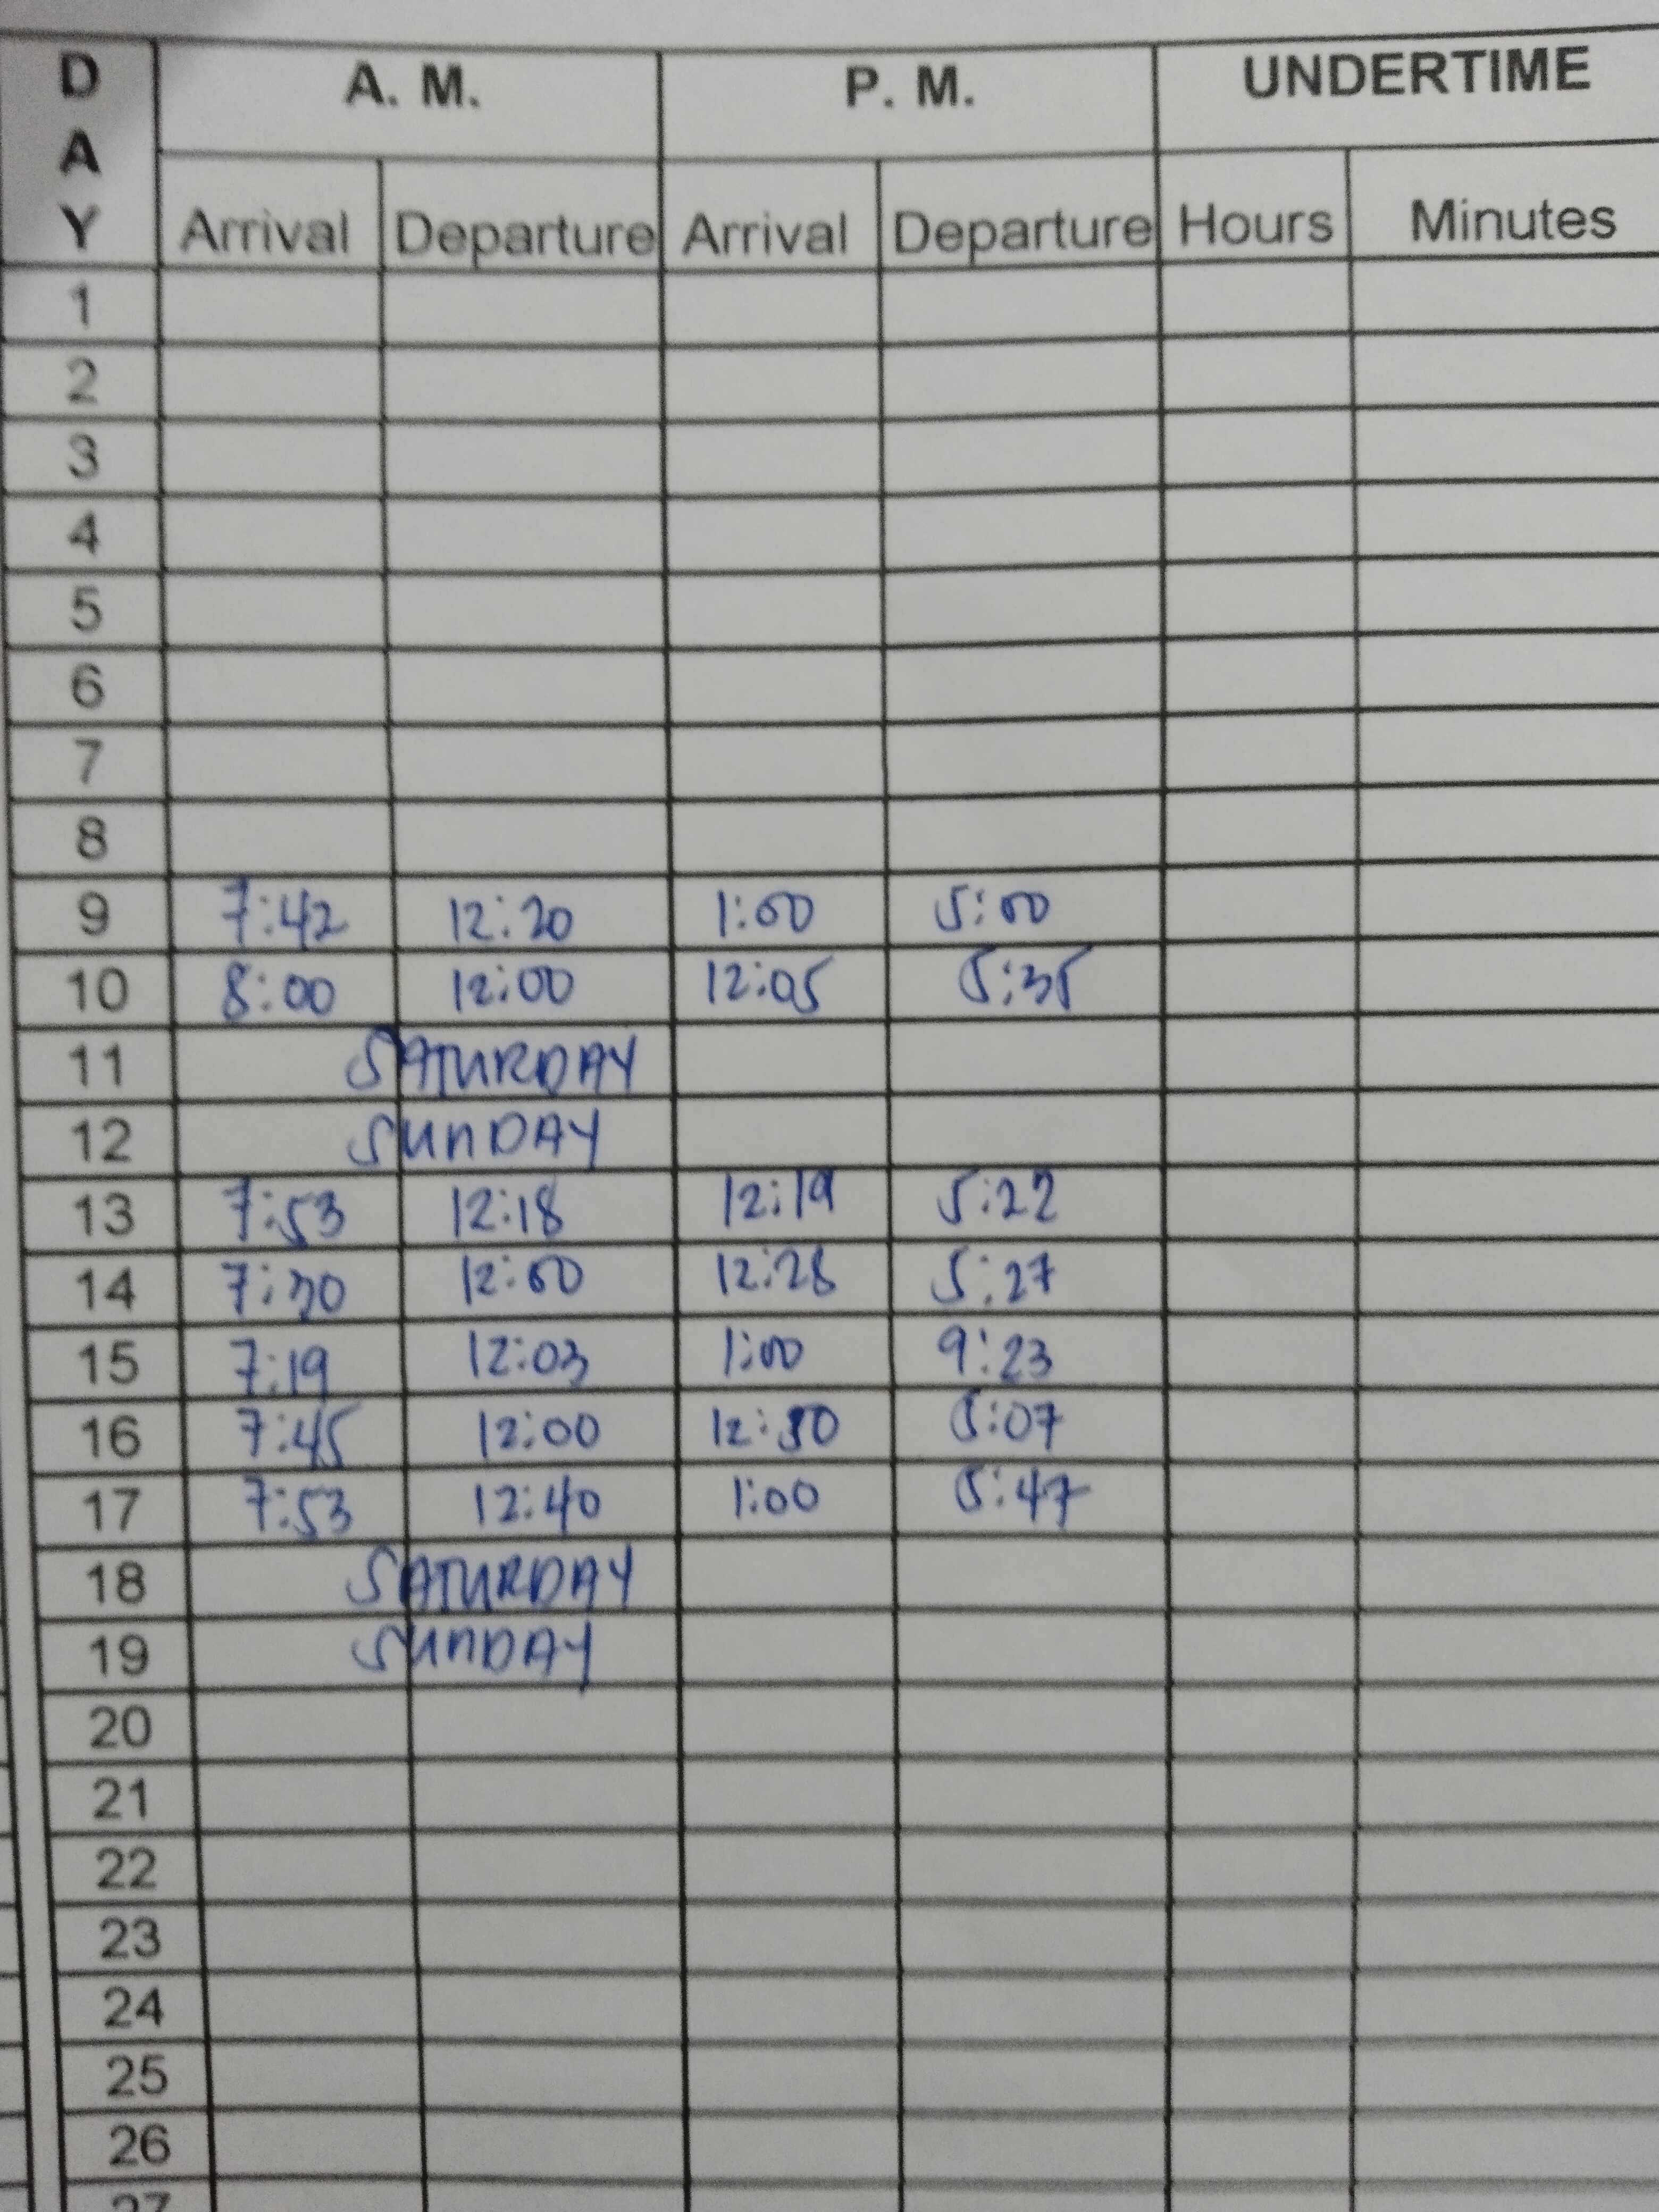 D A Y A. M. P. M. UNDERTIME
Arrival Departure Arrival Departure Hours Minutes
1
2
3
4
5
6
7
8
9 7:42 12:20 1:00 5:00
10 8:00 12:00 12:05 5:35
11 SATURDAY
12 SUNDAY
13 7:53 12:18 12:19 5:22
14 12:00 12:28 5:27
15 7:19 12:03 1:00 9:23
16 7:45 12:00 5:07
17 7:53 12:40 1:00 5:47
18 SATURDAY
19 SUNDAY
20
21
22
23
24
25
26
27